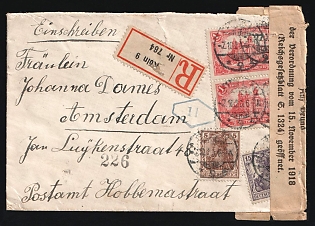 Einschreiben
Fräulein
Johanna Dames
Amsterdam
Jan Luÿkenstraat 48
226
Postamt Hobbemastraat
R
Köln 9
Nr 764
Auf Grund
der Verordnung vom 15. November 1918
(Reichsgesetzblatt S. 1324) geöffnet.